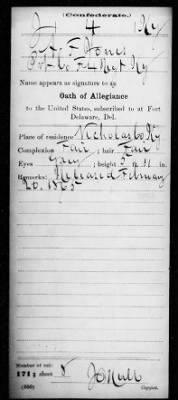 (Confederate.)
J 4 Ky
F Jones
Pvt Co F 4 Regt Ky
Name appears as signature to an
Oath of Allegiance
to the United States, subscribed to at Fort
Delaware, Del.
Place of residence Nicholas Co Ky
Complexion Fair ; hair Fair
Eyes Gray ; height 5 ft 11 in.
Remarks: Released February
20. 1865
Number of roll:
171; sheet 8
(656) Copyist.